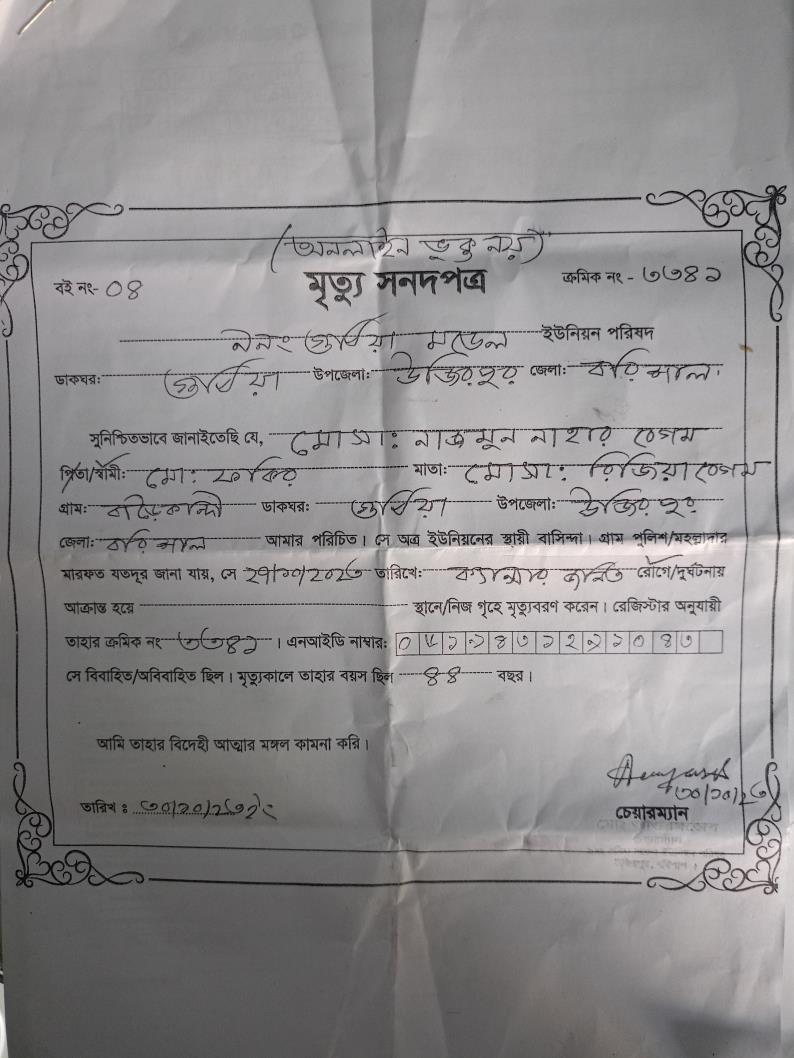 (অনলাইন ভুক্ত নয়)
বই নং- ০৪ মৃত্যু সনদপত্র ক্রমিক নং - ৩৩৪১
৯নং গুঠিয়া মডেল ইউনিয়ন পরিষদ
ডাকঘরঃ গুঠিয়া উপজেলাঃ উজিরপুর জেলাঃ বরিশাল।
সুনিশ্চিতভাবে জানাইতেছি যে, মোসাঃ নাজমুন নাহার বেগম
পিতা/স্বামীঃ মোঃ ফকির মাতাঃ মোসাঃ রিজিয়া বেগম
গ্রামঃ ডাকঘরঃ গুঠিয়া উপজেলাঃ উজিরপুর
জেলাঃ বরিশাল আমার পরিচিত। সে অত্র ইউনিয়নের স্থায়ী বাসিন্দা। গ্রাম পুলিশ/মহল্লাদার
মারফত যতদূর জানা যায়, সে তারিখেঃ ক্যান্সার জনিত রোগে/দূর্ঘটনায়
আক্রান্ত হয়ে স্থানে/নিজ গৃহে মৃত্যুবরণ করেন। রেজিস্টার অনুযায়ী
তাহার ক্রমিক নং ৩৩৪১। এনআইডি নাম্বারঃ
সে বিবাহিত/অবিবাহিত ছিল। মৃত্যুকালে তাহার বয়স ছিল ৪৪ বছর।
আমি তাহার বিদেহী আত্মার মঙ্গল কামনা করি।
তারিখ :
চেয়ারম্যান